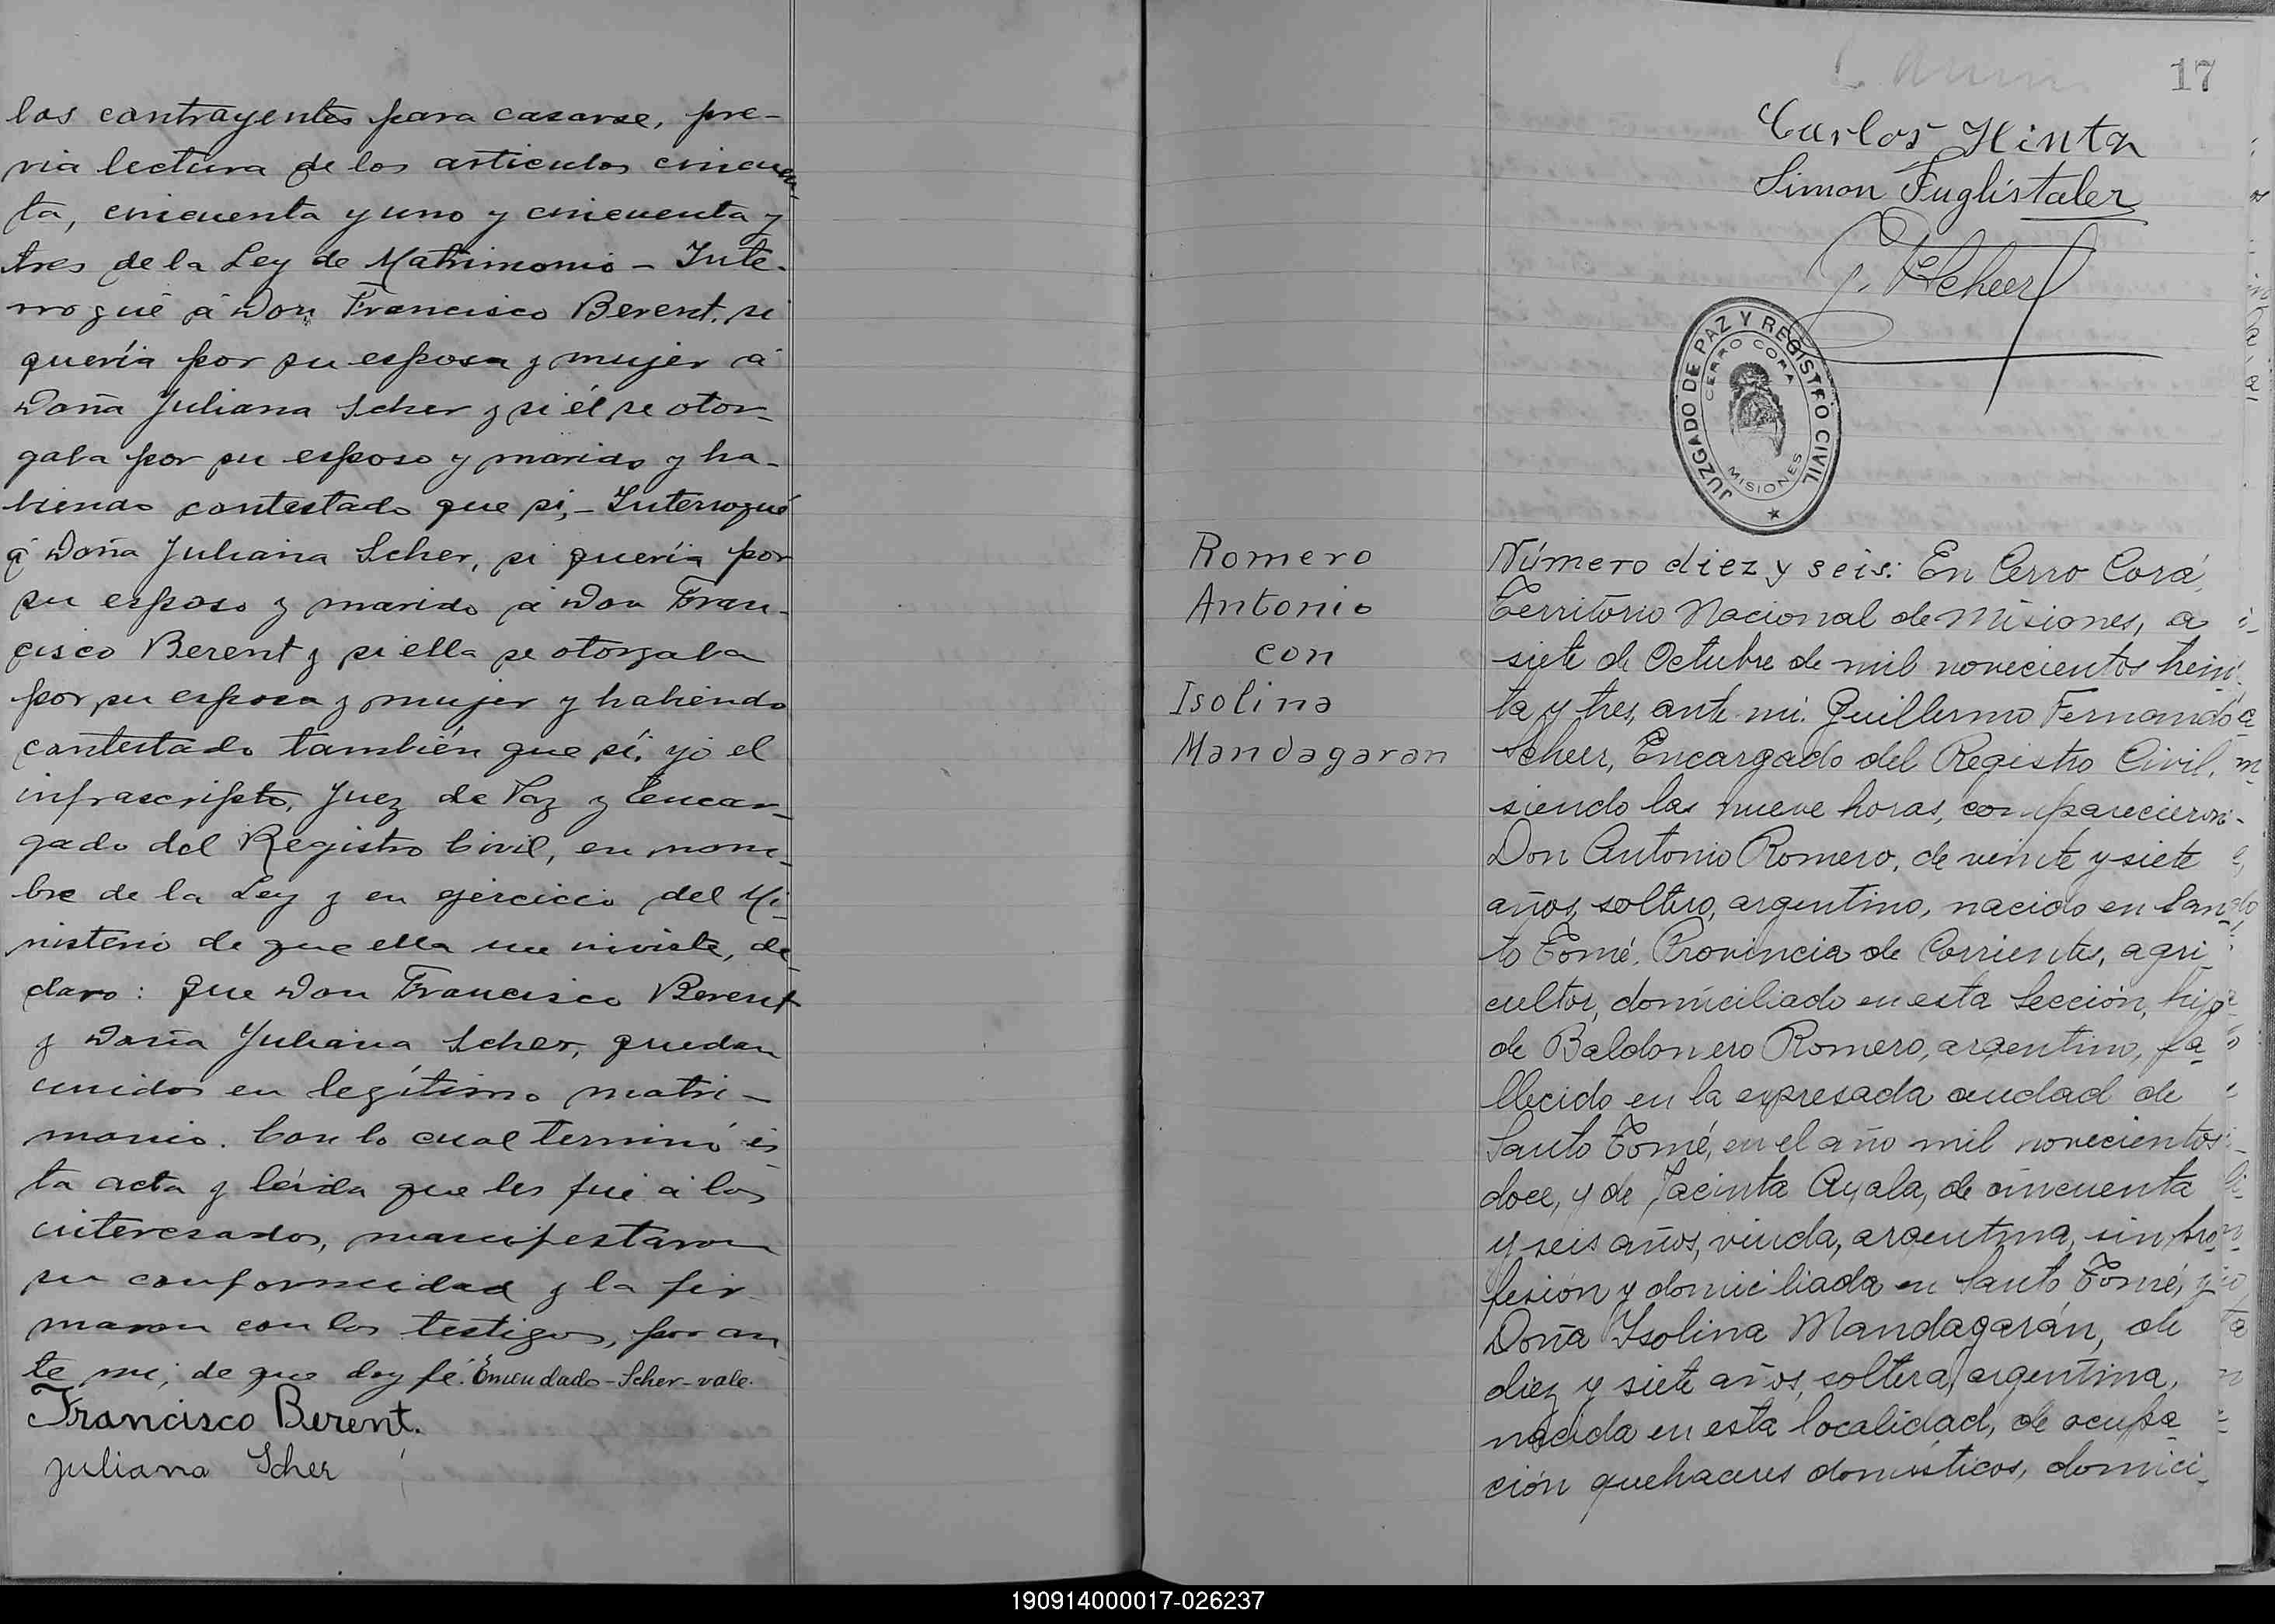 los contrayentes para casarse, pre-
via lectura de los articulos cincuen-
ta, cincuenta y uno y cincuenta y
tres de la Ley de Matrimonio - Inte-
rrogué á Don Francisco Berent. si
quería por su esposa y mujer á
Doña Juliana Scher y si él se otor-
gaba por su esposo y marido y ha-
biendo contestado que si, - Interrogué
á Doña Juliana Scher, si quería por
su esposo y marido á Don Fran-
cisco Berent y si ella se otorgaba
por su esposa y mujer y habiendo
contestado también que sí, yo el
infrascripto, Juez de Paz y Encar-
gado del Registro Civil, en nom-
bre de la Ley y en ejercicio del Mi-
nisterio de que ella me inviste, de-
claro: que Don Francisco Berent
y Doña Juliana Scher, quedan
unidos en legítimo matri-
monio. Con lo cual terminó és
ta acta y leída que les fué á los
interesados, manifestaron
su conformidad y la fir-
maron con los testigos, por an
te mi, de que doy fé. Emendado - Scher - vale.
Francisco Berent.
Juliana Scher
17
Carlos Hinta
Simon Fuglistaler
G. F. Scheer
JUZGADO DE PAZ Y REGISTRO CIVIL
CERRO CORA
MISIONES
Romero
Antonio
con
Isolina
Mandagaran
Número diez y seis: En Cerro Corá,
Territorio Nacional de Misiones, a
siete de Octubre de mil novecientos trein-
ta y tres, ante mi. Guillermo Fernando
Scheer, Encargado del Registro Civil,
siendo las nueve horas, comparecieron
Don Antonio Romero, de veinte y siete
años, soltero, argentino, nacido en San-
to Tomé. Provincia de Corrientes, agri
cultor, domiciliado en esta Sección, hijo
de Baldonero Romero, argentino, fa-
llecido en la expresada ciudad de
Santo Tomé, en el año mil novecientos
doce, y de Jacinta Ayala, de cincuenta
y seis años, viuda, argentina, sin pro-
fesión y domiciliada en Santo Tomé, y
Doña Isolina Mandagarán, de
diez y siete años, soltera, argentina,
nacida en esta localidad, de ocupa-
ción quehaceres domésticos, domici-
190914000017-026237